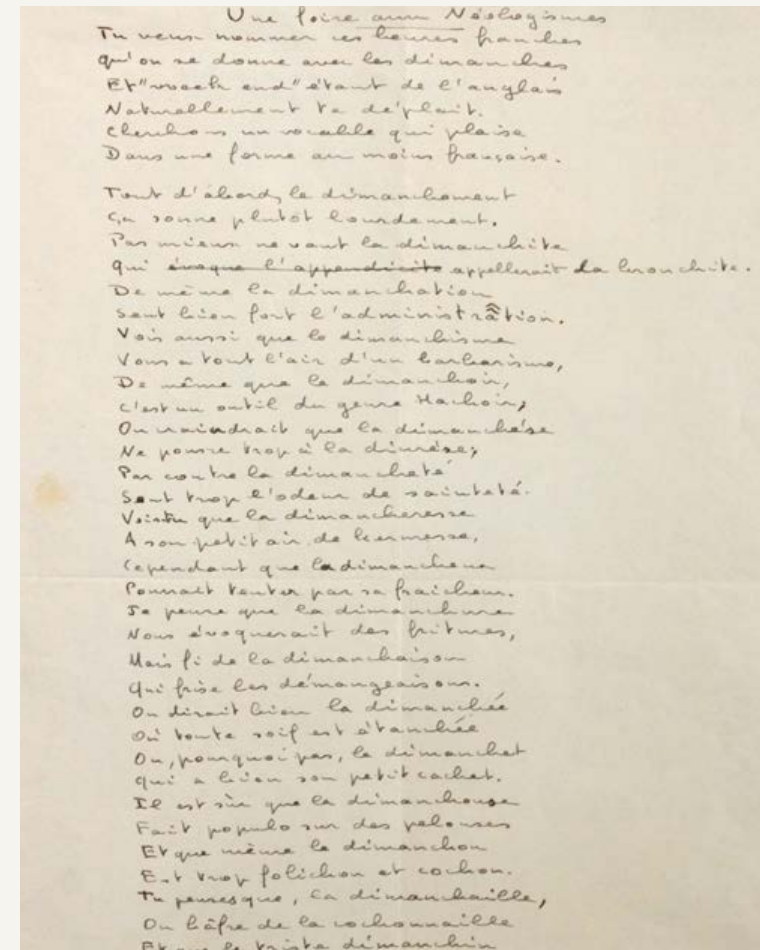 Une foire aux Néologismes
Tu veux nommer ces heures franches
qu'on se donne avec les dimanches
Et "week end" étant de l'anglais
Naturellement te déplait.
Cherchons un vocable qui plaise
Dans une forme au moins française.
Tout d'abord, le dimanchement
Ça sonne plutôt lourdement.
Pas mieux ne vaut la dimanchite
Qui évoque l'appendicite appellerait la bronchite.
De même la dimanchation
Sent bien fort l'administration.
Vois aussi que le dimanchisme
Vous a tout l'air d'un barbarisme,
De même que le dimanchoir,
C'est un outil du genre Hachoir,
On craindrait que la dimanchèse
Ne pousse trop à la diurèse;
Par contre la dimancheté
Sent trop l'odeur de sainteté.
Vois-tu que la dimancheresse
A son petit air de kermesse,
Cependant que la dimancheur
Pourrait tenter par sa fraicheur.
Je pense que la dimanchure
Nous évoquerait des fritures,
Mais fi de la dimanchaison
Qui frise les démangeaisons.
On dirait bien la dimanchée
Où toute soif est étanchée
Ou, pourquoi pas, le dimanchet
Qui a bien son petit cachet.
Il est sûr que la dimanchouse
Fait populo sur des pelouses
Et que même le dimanchon
Est trop folichon et cochon.
Tu penses que, la dimanchaille,
On bâfre de la cochonnaille
Et que le triste dimanchin